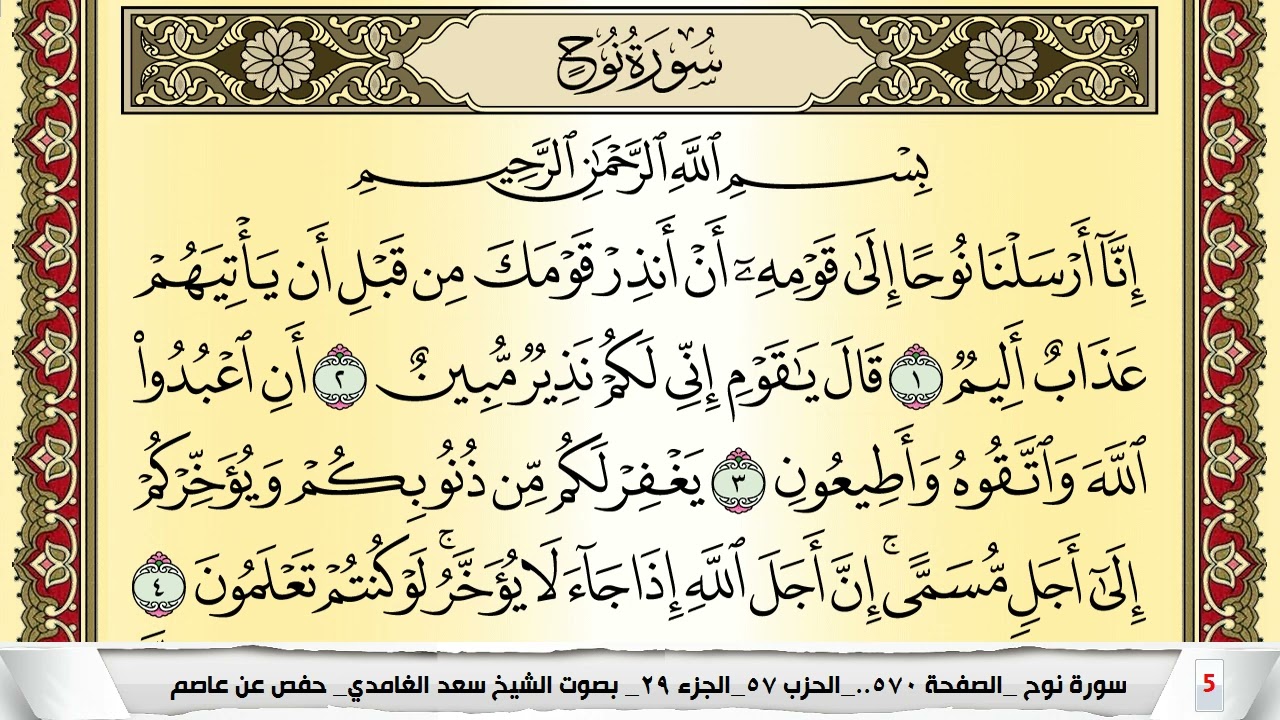 سُورَةُ نُوحٍ
بِسْمِ ٱللَّهِ ٱلرَّحْمَٰنِ ٱلرَّحِيمِ
إِنَّآ أَرْسَلْنَا نُوحًا إِلَىٰ قَوْمِهِۦٓ أَنْ أَنذِرْ قَوْمَكَ مِن قَبْلِ أَن يَأْتِيَهُمْ
عَذَابٌ أَلِيمٌ ١ قَالَ يَٰقَوْمِ إِنِّى لَكُمْ نَذِيرٌ مُّبِينٌ ٢ أَنِ ٱعْبُدُوا۟
ٱللَّهَ وَٱتَّقُوهُ وَأَطِيعُونِ ٣ يَغْفِرْ لَكُم مِّن ذُنُوبِكُمْ وَيُؤَخِّرْكُمْ
إِلَىٰٓ أَجَلٍ مُّسَمًّى ۚ إِنَّ أَجَلَ ٱللَّهِ إِذَا جَآءَ لَا يُؤَخَّرُ ۚ لَوْ كُنتُمْ تَعْلَمُونَ ٤
سورة نوح _الصفحة ٥٧٠.._الحزب ٥٧_الجزء ٢٩_ بصوت الشيخ سعد الغامدي_ حفص عن عاصم
5